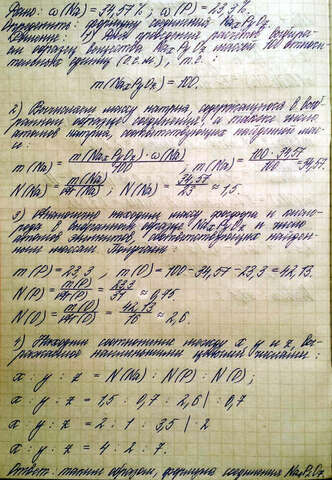 Дано: ω(Na) = 34,57%; ω(P) = 23,3%.
Определить: формулу соединения NaxPyOz.
Решение: 1) Для проведения расчетов выбира-
ем образец вещества NaxPyOz массой 100 относи-
тельных единиц (о.е.м.), т.е.:
m(NaxPyOz) = 100.
2) Вычисляем массу натрия, содержащегося в выб-
ранном образце соединения, а также число
атомов натрия, соответствующих найденной мас-
се:
m(Na) = m(NaxPyOz) · ω(Na) / 100, m(Na) = 100 · 34,57 / 100 = 34,57.
N(Na) = m(Na) / Ar(Na); N(Na) = 34,57 / 23 ≈ 1,5.
3) Аналогично находим массу фосфора и кисло-
рода в выбранном образце NaxPyOz и число
атомов элементов, соответствующих найден-
ным массам. Получаем:
m(P) = 23,3, m(O) = 100 - 34,57 - 23,3 = 42,13.
N(P) = m(P) / Ar(P) = 23,3 / 31 ≈ 0,75.
N(O) = m(O) / Ar(O) = 42,13 / 16 ≈ 2,6.
4) Находим соотношение между x, y и z, вы-
ражаемое наименьшими целыми числами:
x : y : z = N(Na) : N(P) : N(O);
x : y : z = 1,5 : 0,7 : 2,6 | : 0,7
x : y : z = 2 : 1 : 3,5 | · 2
x : y : z = 4 : 2 : 7.
Ответ: таким образом, формула соединения Na4P2O7.